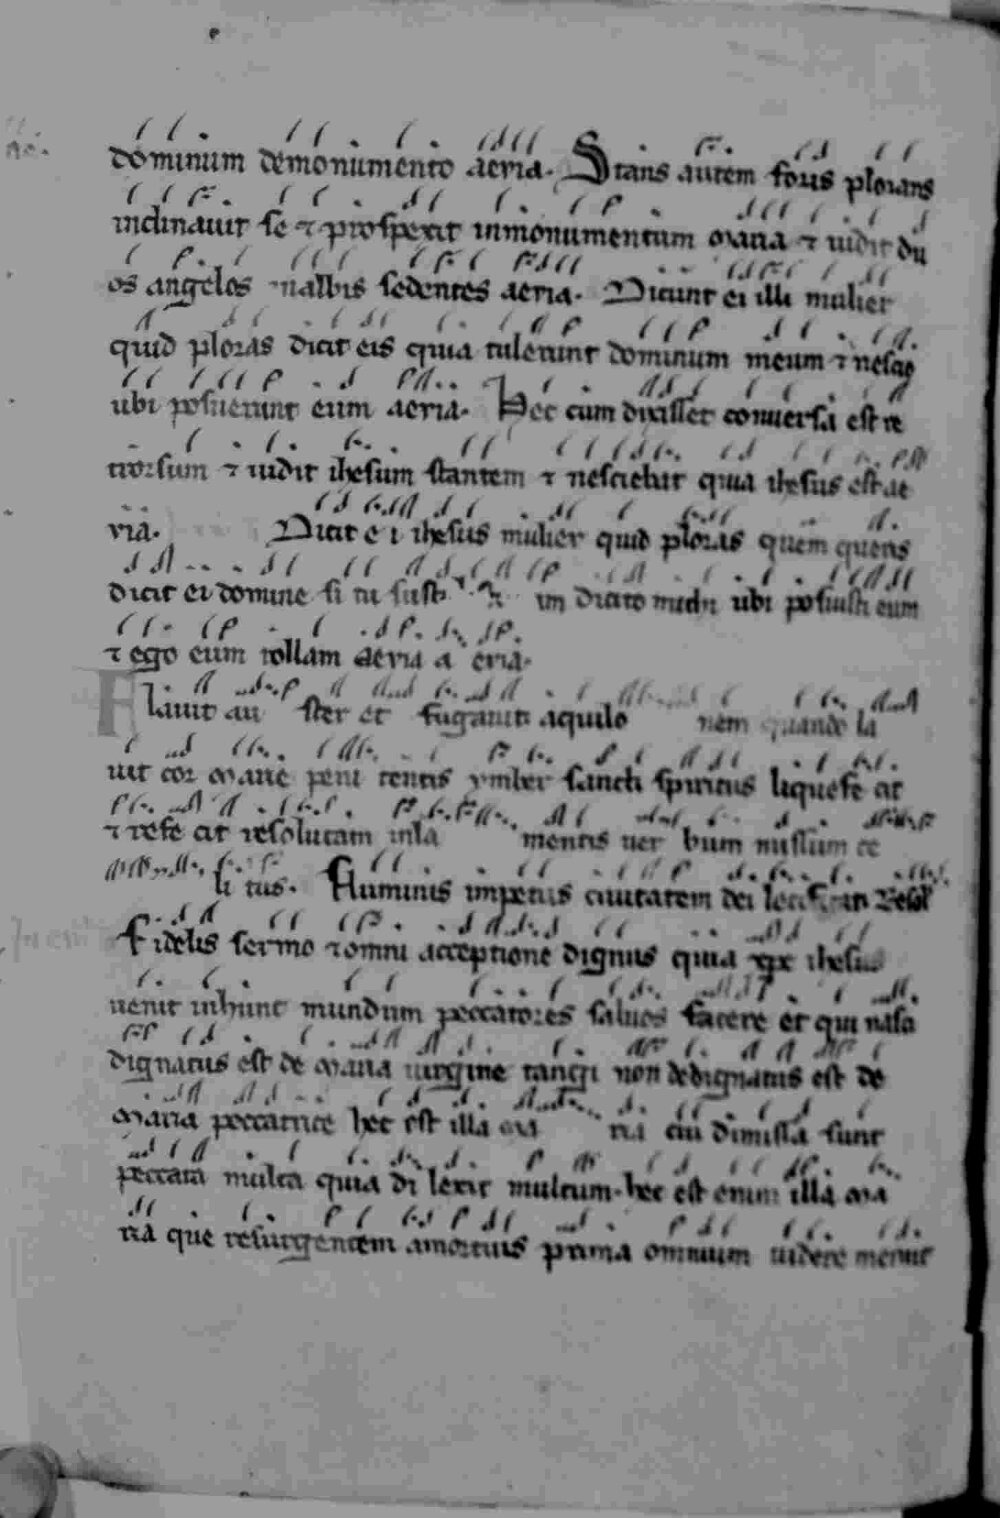 dominum demonumento aevia. Stans autem foris plorans
inclinavit se ⁊ prospexit inmonumentum maria ⁊ uidit du
os angelos inalbis sedentes aevia. Dicunt ei illi mulier
quid ploras dicit eis quia tulerunt dominum meum ⁊ nescio
ubi posuerunt eum aevia. Hec cum dixisset conuersa est re
trorsum ⁊ uidit ihesum stantem ⁊ nesciebat quia ihesus est ae
via. Dicit e i ihesus mulier quid ploras quem queris
dicit ei domine si tu sust im dicito michi ubi posuisti eum
⁊ ego eum tollam aevia a evia.
Flauit au ster et fugauit aquilo nem quando la
uit cor marie peni tentis ymber sancti spiritus liquefe cit
⁊ refe cit resolutam inla mentis uer bum missum ce
li tus. Fluminis impetus ciuitatem dei Resol
Fidelis sermo ⁊ omni acceptione dignus quia xpc ihesus
uenit inhunc mundum peccatores saluos facere et qui nasci
dignatus est de maria uirgine tangi non dedignatus est de
maria peccatrice hec est illa ma ria cui dimissa sunt
peccata multa quia di lexit multum. hec est enim illa ma
ria que resurgentem amortuis prima omnium uidere meruit